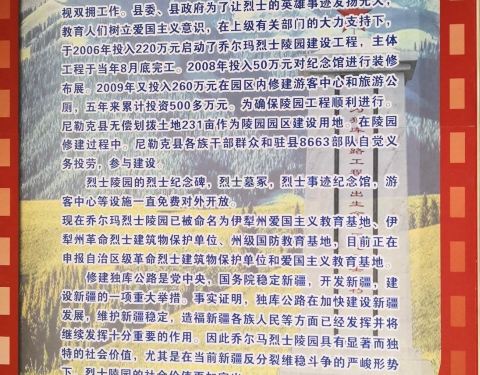 视双拥工作。县委、县政府为了让烈士的英雄事迹发扬光大，
教育人们树立爱国主义意识，在上级有关部门的大力支持下，
于2006年投入220万元启动了乔尔玛烈士陵园建设工程，主体
工程于当年8月底完工。2008年投入50万元对纪念馆进行装修
布展。2009年又投入260万元在园区内修建游客中心和旅游公
厕，五年来累计投资500多万元。为确保陵园工程顺利进行。
尼勒克县无偿划拨土地231亩作为陵园园区建设用地。在陵园
修建过程中，尼勒克县各族干部群众和驻县8663部队自觉义
务投劳，参与建设。
烈士陵园的烈士纪念碑，烈士墓冢，烈士事迹纪念馆，游
客中心等设施一直免费对外开放。
现在乔尔玛烈士陵园已被命名为伊犁州爱国主义教育基地、伊
犁州革命烈士建筑物保护单位、州级国防教育基地，目前正在
申报自治区级革命烈士建筑物保护单位和爱国主义教育基地。
修建独库公路是党中央、国务院稳定新疆，开发新疆，建
设新疆的一项重大举措。事实证明，独库公路在加快建设新疆
发展，维护新疆稳定，造福新疆各族人民等方面已经发挥并将
继续发挥十分重要的作用。因此乔尔玛烈士陵园具有显著而独
特的社会价值，尤其是在当前新疆反分裂维稳斗争的严峻形势
下，烈士陵园的社会价值更加突出